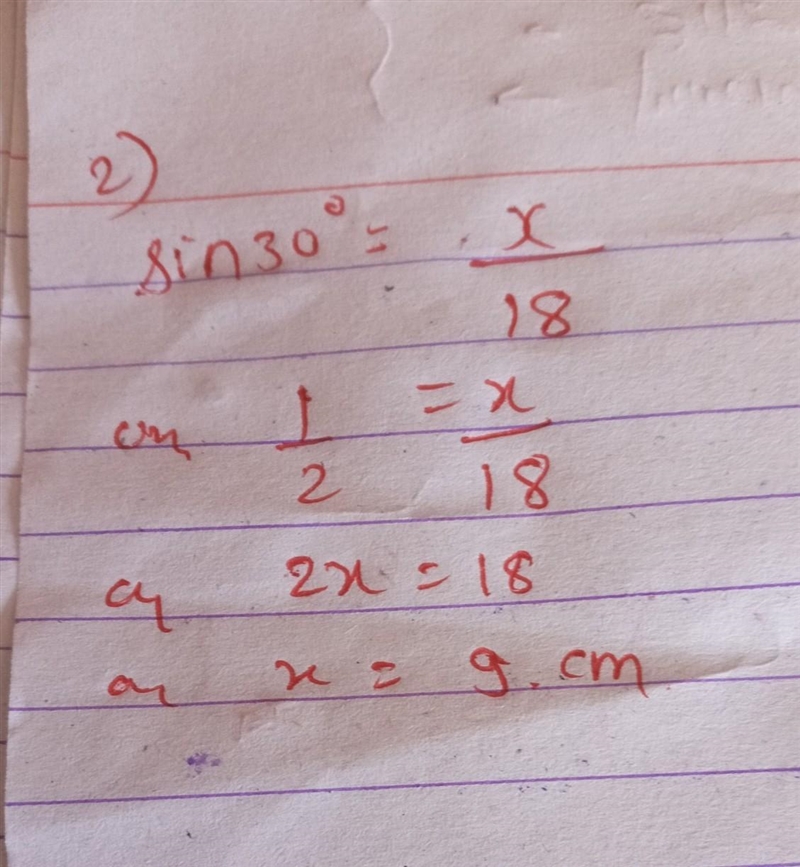 2)
sin30° = x/18
or 1/2 = x/18
or 2x = 18
or x = 9. cm